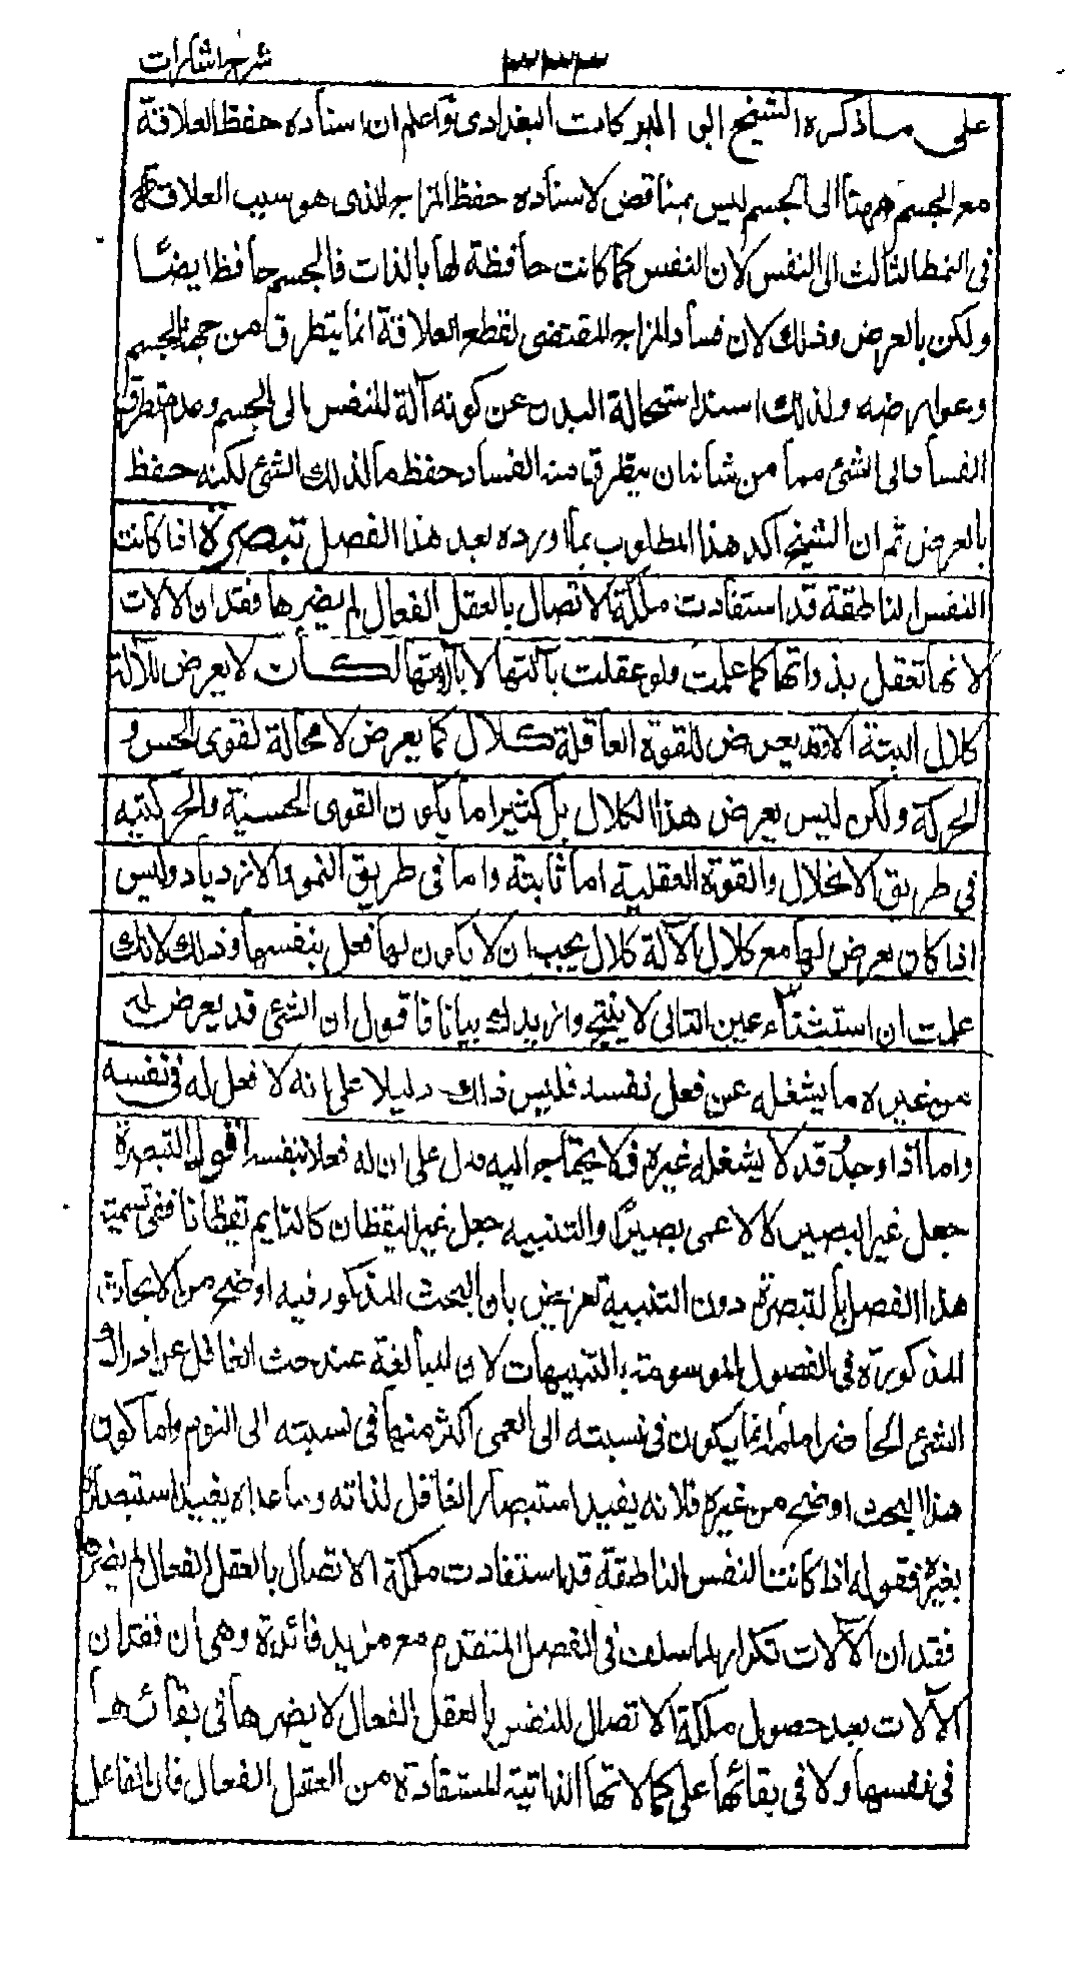 شرح اشارات
٣٣٣
على ماذكره الشيخ ابو البركات البغدادى واعلم ان اسناده حفظ العلاقة
مع الجسم ههنا الى الجسم ليس بمناقض لاسناده حفظ المزاج الذى هو سبب العلاقة
فى النمط الثالث الى النفس لان النفس كما كانت حافظة لها بالذات فالجسم حافظ ايضا
ولكن بالعرض وذلك لان فساد المزاج المقتضى لقطع العلاقة انما يتطرق من جهة الجسم
وعوارضه ولذلك اسند استحالة البدن عن كونه آلة للنفس الى الجسم وعدم تطرق
الفساد الى الشئ مما من شانه ان يتطرق منه الفساد حفظ ما لذلك الشئ لكنه حفظ
بالعرض ثم ان الشيخ اكد هذا المطلوب بما اورده بعد هذا الفصل تبصرة اذا كانت
النفس الناطقة قد استفادت ملكة الاتصال بالعقل الفعال لم يضرها فقدان الالات
لانها تعقل بذواتها كما علمت ولو عقلت بآلتها لكان لا يعرض للآلة
كلال البتة الا وقد يعرض للقوة العاقلة كلال كما يعرض لا محالة لقوى الحس و
الحركة ولكن ليس يعرض هذا الكلال بل كثيرا ما يكون القوى الحسية والحركتيه
فى طريق الانحلال والقوة العقلية اما ثابتة واما فى طريق النمو والازدياد وليس
اذا كان يعرض لها مع كلال الآلة كلال يجب ان لا يكون لها فعل بنفسها وذلك لانك
علمت ان استثناء عين التالى لا ينتج وازيدك بيانا فاقول ان الشئ قد يعرض له
من غيره ما يشغله عن فعل نفسه فليس ذلك دليلا على انه لا فعل له فى نفسه
واما اذا وجد قد لا يشغله غيره فلا يحتاج اليه فدل على ان له فعلا بنفسه اقول التبصرة
جعل غير البصير كالاعمى بصيرا والتنبيه جعل غير اليقظان كالنايم يقظانا ففى تسمية
هذا الفصل بالتبصرة دون التنبيه تعريض بان البحث المذكور فيه اوضح من الابحاث
المذكورة فى الفصول الموسومة بالتنبيهات لان المبالغة عند حث الغافل عن ادراك
الشئ الحاضر امامه انما يكون فى نسبته الى العمى اكثر منها فى نسبته الى النوم واما كون
هذا البحث اوضح من غيره فلانه يفيد استبصار الغافل لذاته وماعداه يفيد استبصاره
بغيره فقوله اذا كانت النفس الناطقة قد استفادت ملكة الاتصال بالعقل الفعال لم يضرها
فقدان الآلات تكرار لما سلف فى الفصل المتقدم مع مزيد فائدة وهى ان فقدان
الآلات بعد حصول ملكة الاتصال للنفس بالعقل الفعال لا يضرها فى بقائها
فى نفسها ولا فى بقائها على كمالاتها الذاتية المستفادة من العقل الفعال فان الفاعل